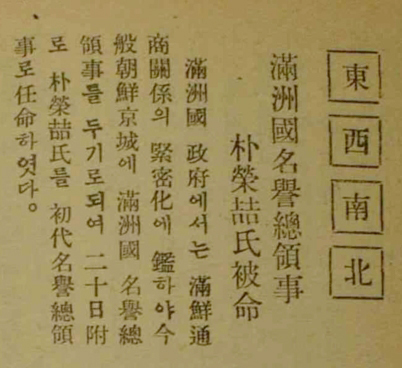 東西南北
滿洲國名譽總領事
朴榮喆氏被命
滿洲國 政府에서는 滿鮮通
商關係의 緊密化에 鑑하야今
般朝鮮京城에 滿洲國 名譽總
領事를 두기로되여 二十日附
로 朴榮喆氏를 初代名譽總領
事로任命하엿다。